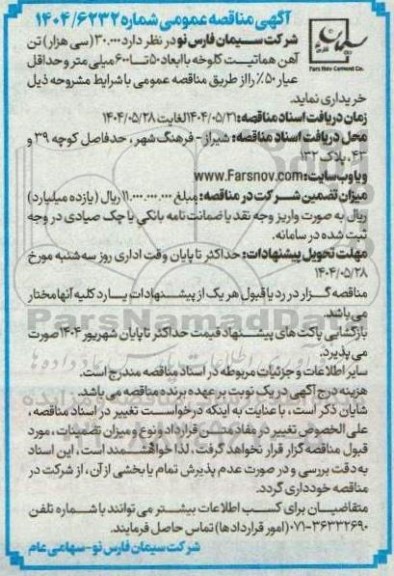 آگهی مناقصه عمومی شماره ۱۴۰۴/۶۲۳۲
شرکت سیمان فارس نو در نظر دارد ۳۰.۰۰۰ (سی هزار) تن
آهن هماتیت کلوخه با ابعاد ۵۰ تا ۶۰۰ میلی متر و حداقل
عیار ۵۰٪ را از طریق مناقصه عمومی با شرایط مشروحه ذیل
خریداری نماید.
Fars Nov Cement Co.
زمان دریافت اسناد مناقصه: ۱۴۰۴/۰۵/۲۱ لغایت ۱۴۰۴/۰۵/۲۸
محل دریافت اسناد مناقصه: شیراز - فرهنگ شهر، حدفاصل کوچه ۳۹ و
۴۳، پلاک ۱۳۲
و یا وب سایت: www.Farsnov.com
میزان تضمین شرکت در مناقصه: مبلغ ۱۱.۰۰۰.۰۰۰.۰۰۰ ریال (یازده میلیارد)
ریال به صورت واریز وجه نقد یا ضمانت نامه بانکی یا چک صیادی در وجه
ثبت شده در سامانه.
مهلت تحویل پیشنهادات: حداکثر تا پایان وقت اداری روز سه شنبه مورخ
۱۴۰۴/۰۵/۲۸
مناقصه گزار در رد یا قبول هر یک از پیشنهادات یا رد کلیه آنها مختار
می باشد.
بازگشایی پاکت های پیشنهاد قیمت حداکثر تا پایان شهریور ۱۴۰۴ صورت
می پذیرد.
سایر اطلاعات و جزئیات مربوطه در اسناد مناقصه مندرج است.
هزینه درج آگهی در یک نوبت بر عهده برنده مناقصه می باشد.
شایان ذکر است، با عنایت به اینکه درخواست تغییر در اسناد مناقصه،
علی الخصوص تغییر در مفاد متن قرارداد و نوع و میزان تضمینات، مورد
قبول مناقصه گزار قرار نخواهد گرفت، لذا خواهشمند است، این اسناد
به دقت بررسی و در صورت عدم پذیرش تمام یا بخشی از آن، از شرکت در
مناقصه خودداری گردد.
متقاضیان برای کسب اطلاعات بیشتر می توانند با شماره تلفن
۰۷۱-۳۶۳۳۲۶۹۰ (امور قراردادها) تماس حاصل فرمایند.
شرکت سیمان فارس نو - سهامی عام
ParsNamadData